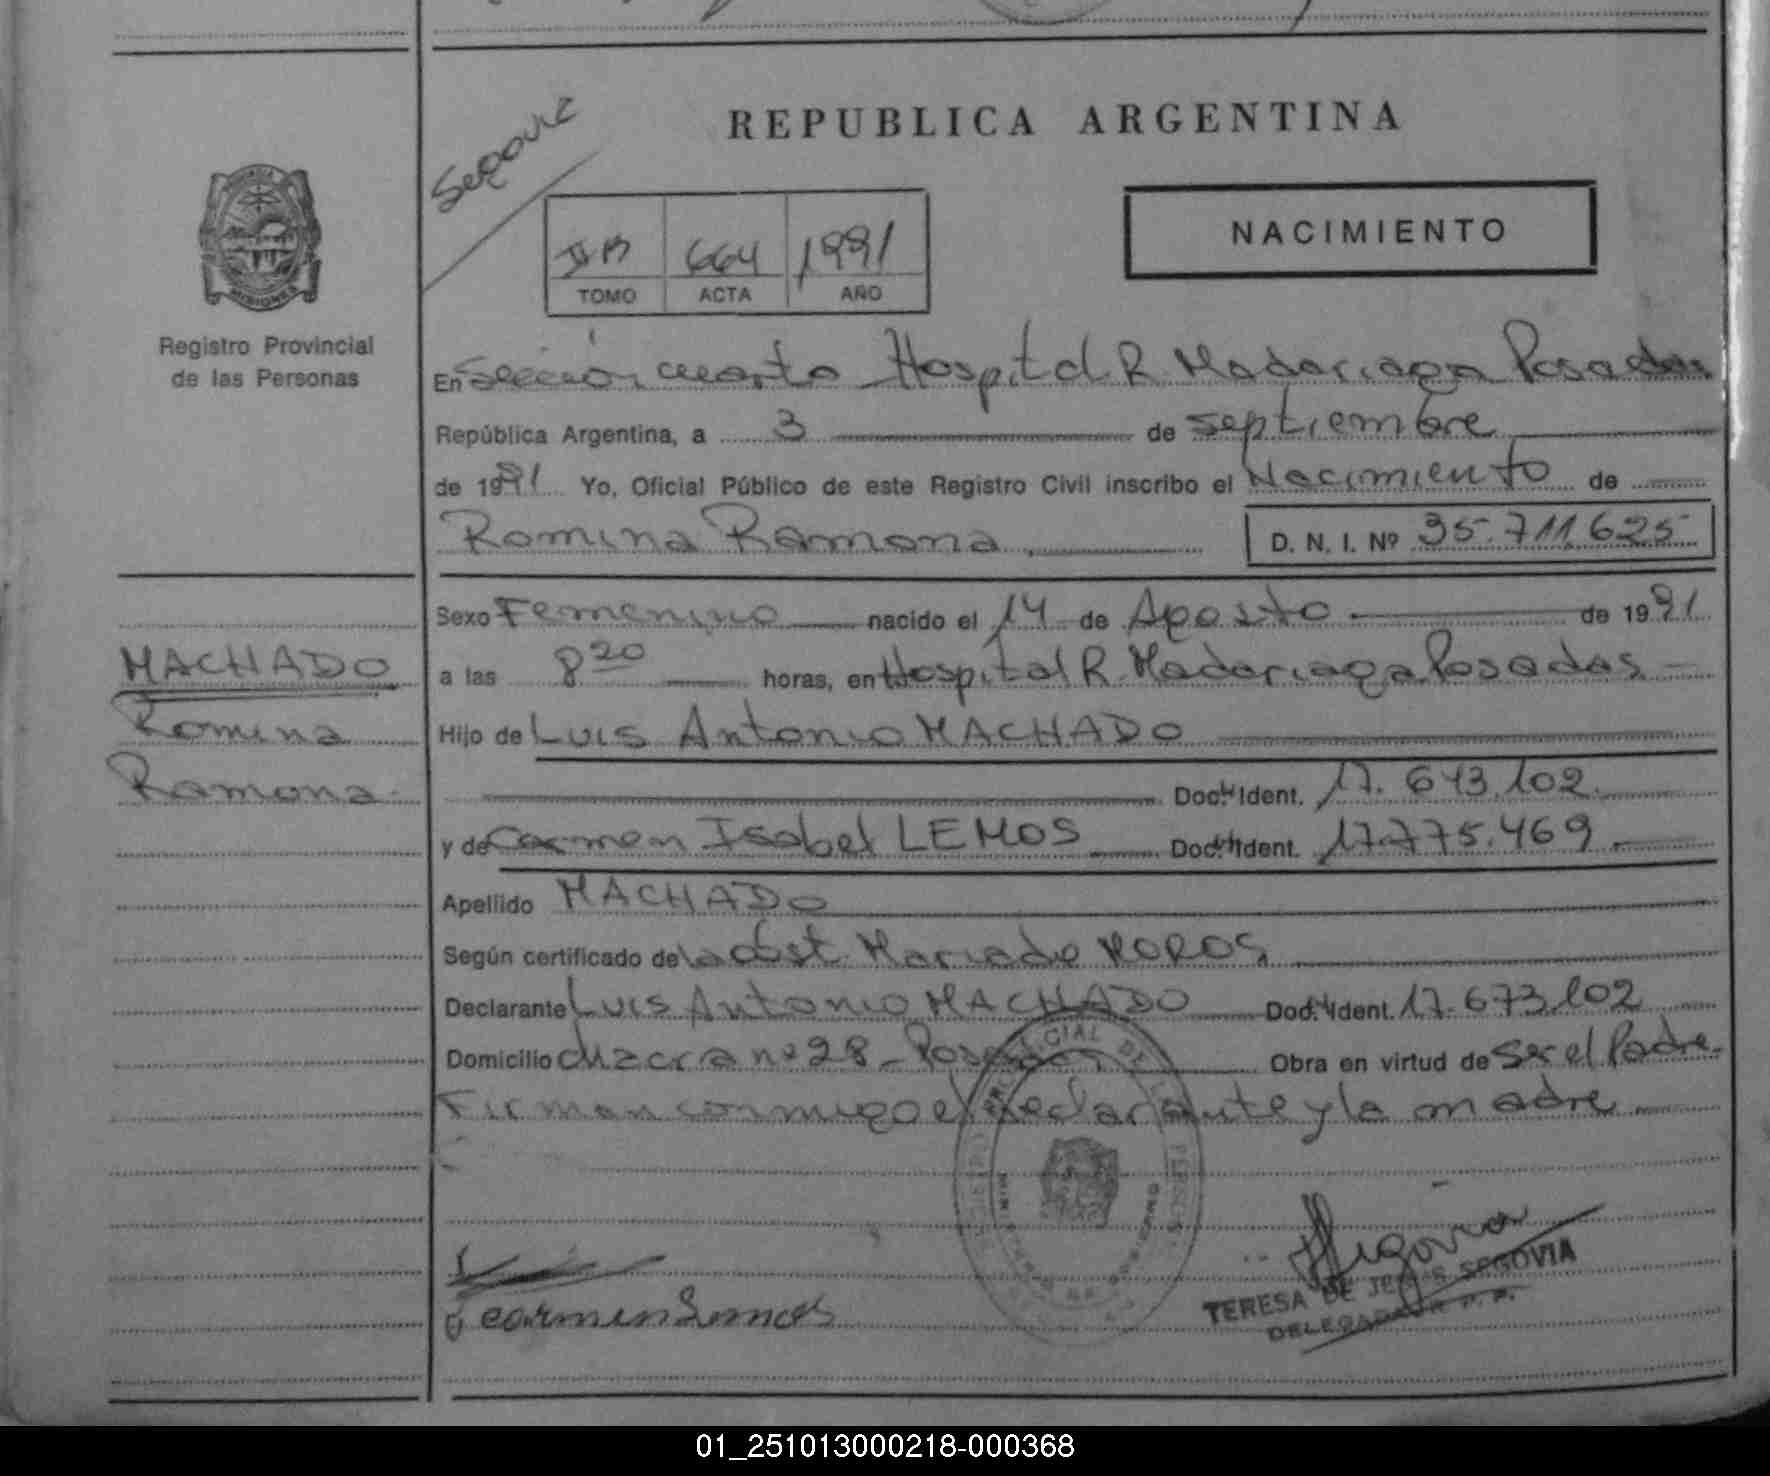 REPUBLICA ARGENTINA
NACIMIENTO
II B 664 1991
TOMO ACTA AÑO
MISIONES
Registro Provincial
de las Personas
En Sección cuarta Hospital R. Madariaga Posadas
República Argentina, a 3 de septiembre
de 1991 Yo, Oficial Público de este Registro Civil inscribo el Nacimiento de
Romina Ramona D. N. I. Nº 35.711.625
Sexo Femenino nacido el 14 de Agosto de 1991
MACHADO
Romina
Ramona
a las 8 20 horas, en Hospital R. Madariaga Posadas
Hijo de Luis Antonio MACHADO
Doc. Ident. 17.673.102
y de Carmen Isabel LEMOS Doc. Ident. 17.775.469
Apellido MACHADO
Según certificado de la obst. Maria de
Declarante Luis Antonio MACHADO Doc. Ident. 17.673.102
Domicilio chacra nº 28 - Posadas Obra en virtud de ser el Padre.
Firman conmigo el declarante y la madre
Carmen Lemos
Segovia
TERESA DE JESUS SEGOVIA
DELEGADA
01_251013000218-000368